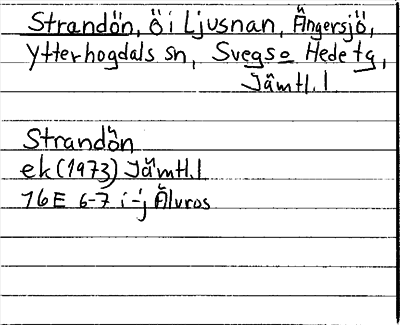 Strandön, ö i Ljusnan, Ängersjö,
Ytterhogdals sn, Svegs o Hede tg,
Jämtl. l
Strandön
ek (1973) Jämtl. l
16E 6-7 i-j Älvros